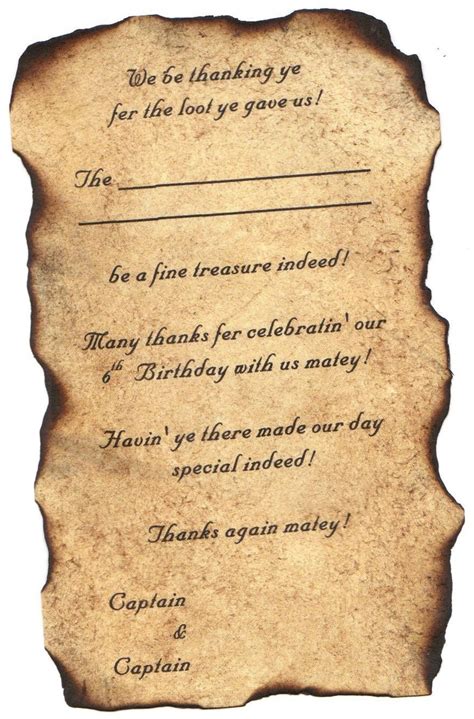 We be thanking ye
fer the loot ye gave us!
The
be a fine treasure indeed!
Many thanks fer celebratin' our
6th Birthday with us matey!
Havin' ye there made our day
special indeed!
Thanks again matey!
Captain
&
Captain